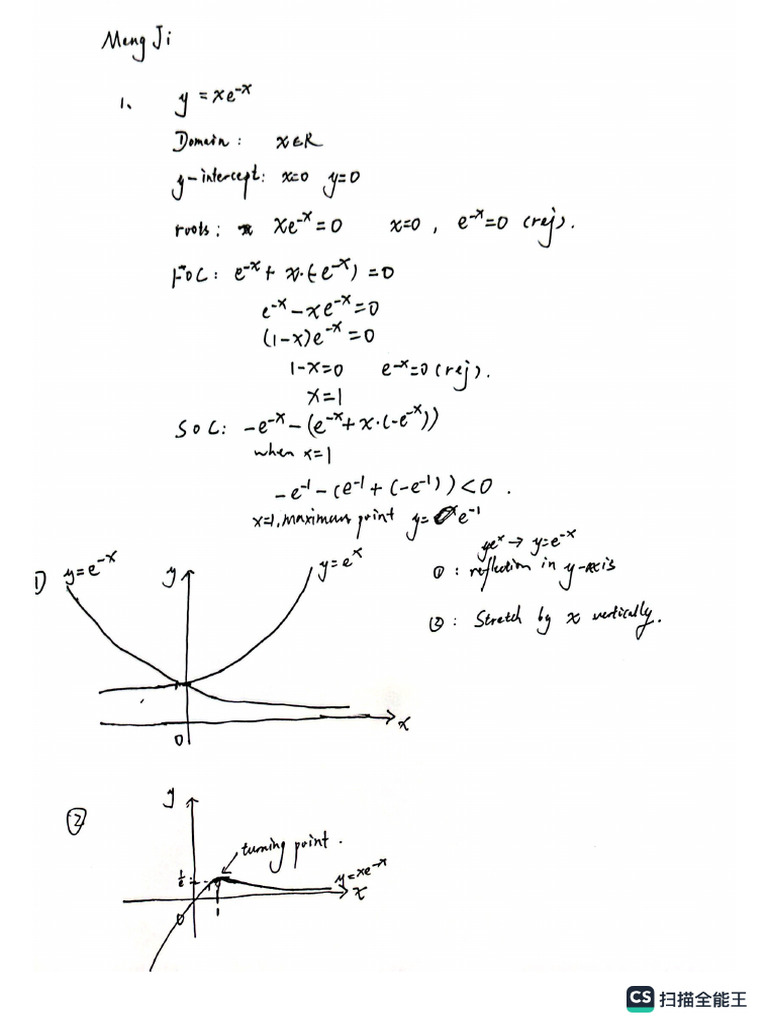 Meng Ji
1. y = xe^-x
Domain: x∈R
y-intercept: x=0 y=0
roots: xe^-x=0 x=0, e^-x=0 (rej).
FOC: e^-x + x·(-e^-x) = 0
e^-x - xe^-x = 0
(1-x)e^-x = 0
1-x=0 e^-x=0 (rej).
x=1
SOC: -e^-x - (e^-x + x·(-e^-x))
when x=1
-e^-1 - (e^-1 + (-e^-1)) < 0.
x=1, maximum point y= e^-1
ye^x → y=e^-x
①: reflection in y-axis
②: Stretch by x vertically.
① y=e^-x y y=e^x
1
0 x
② y
turning point.
1/e y=xe^-x
x
0 1
CS 扫描全能王